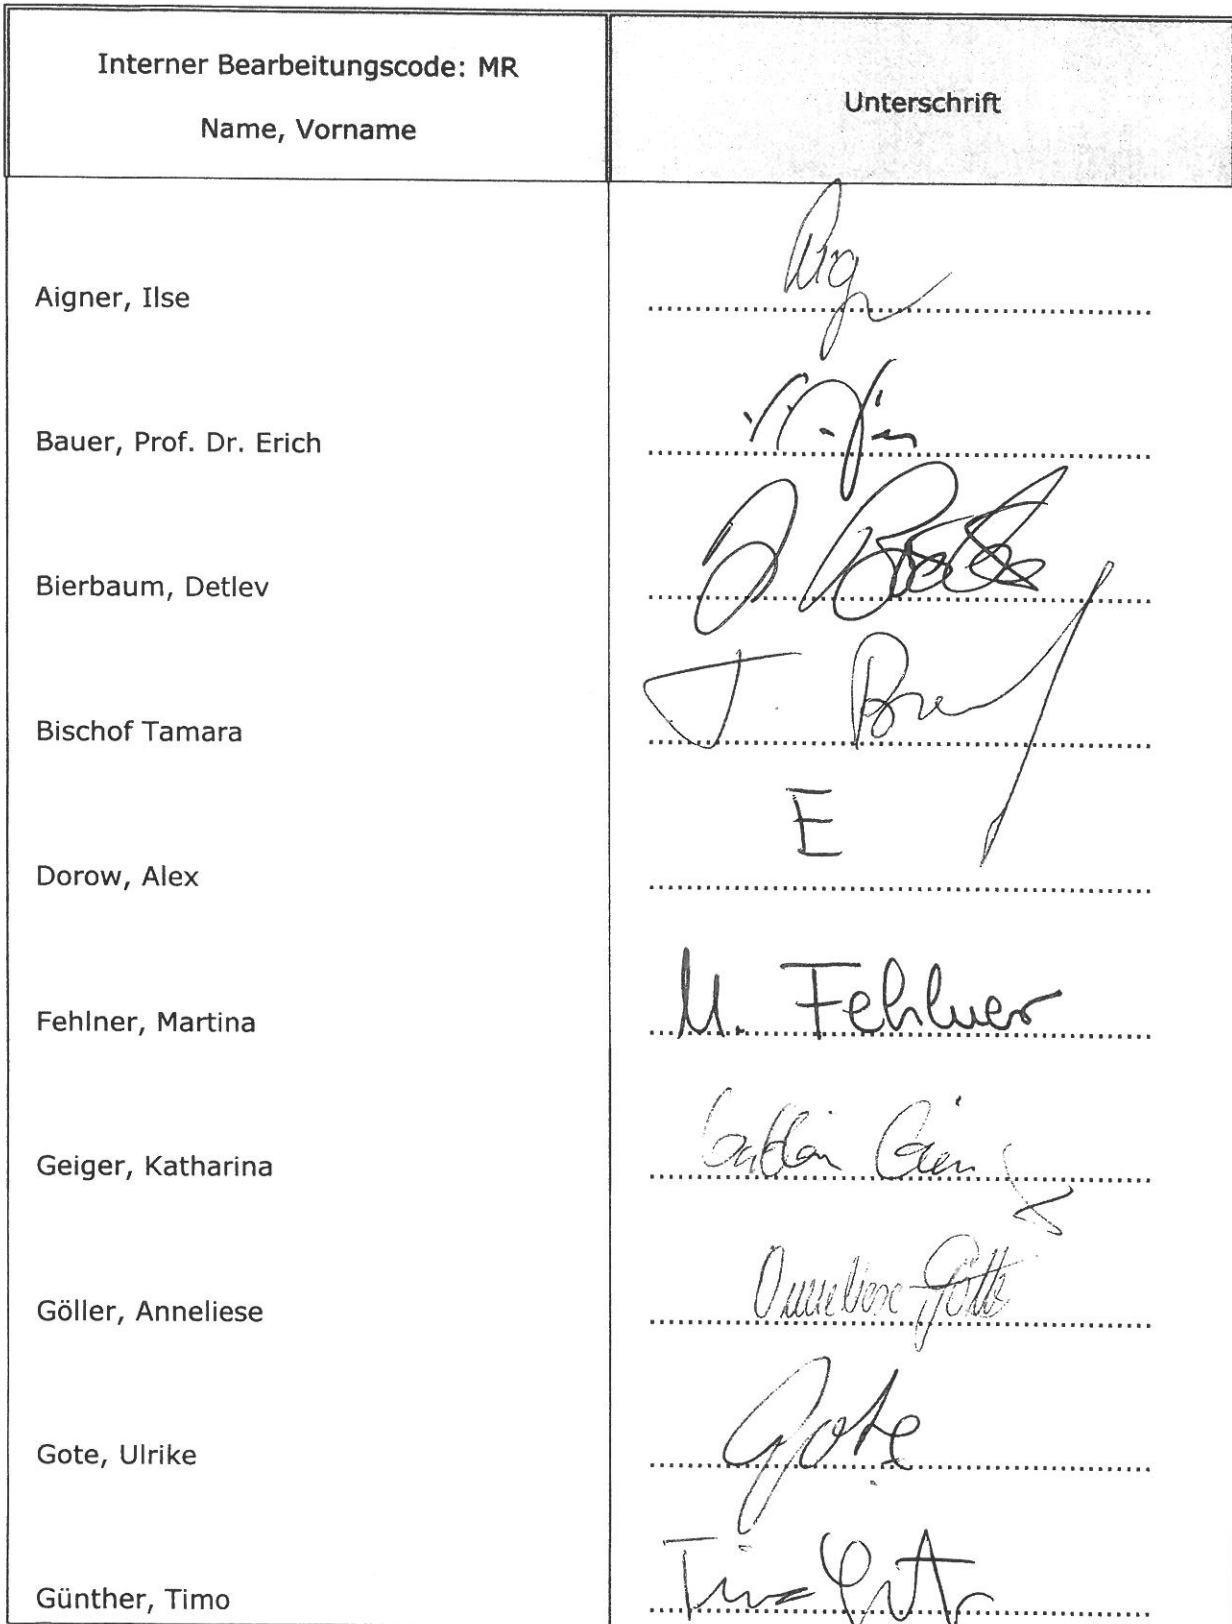 Interner Bearbeitungscode: MR
Name, Vorname
Unterschrift
Aigner, Ilse
Bauer, Prof. Dr. Erich
Bierbaum, Detlev
Bischof Tamara
T.
E
Dorow, Alex
Fehlner, Martina
M. Fehlner
Geiger, Katharina
Göller, Anneliese
Anneliese Göller
Gote, Ulrike
Gote
Günther, Timo
Timo